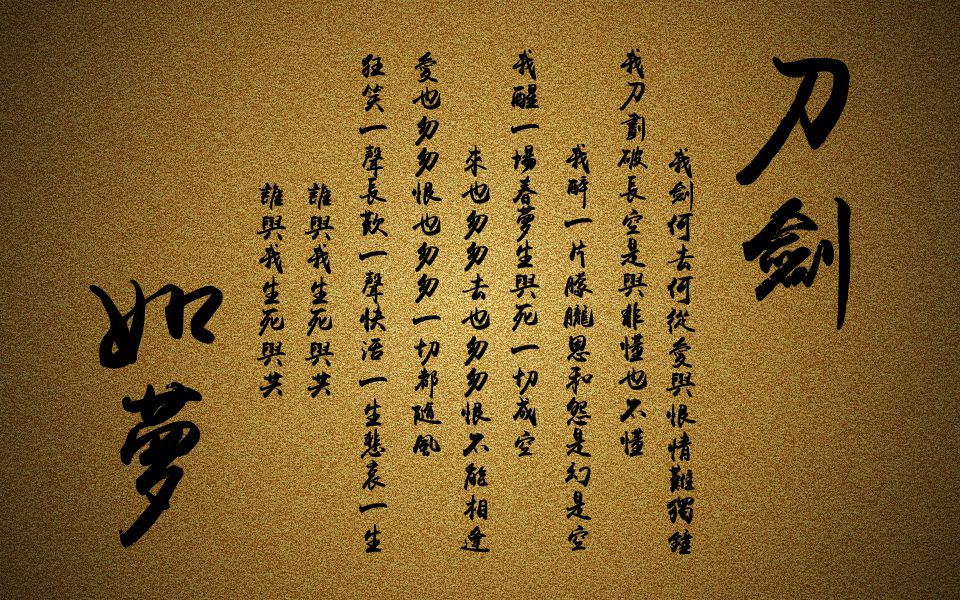 刀劍
我劍何去何從愛與恨情難獨鐘
我刀劃破長空是與非懂也不懂
我醉一片朦朧恩和怨是幻是空
我醒一場春夢生與死一切成空
來也匆匆去也匆匆恨不能相逢
愛也匆匆恨也匆匆一切都隨風
狂笑一聲長歎一聲快活一生悲哀一生
誰與我生死與共
誰與我生死與共
如夢